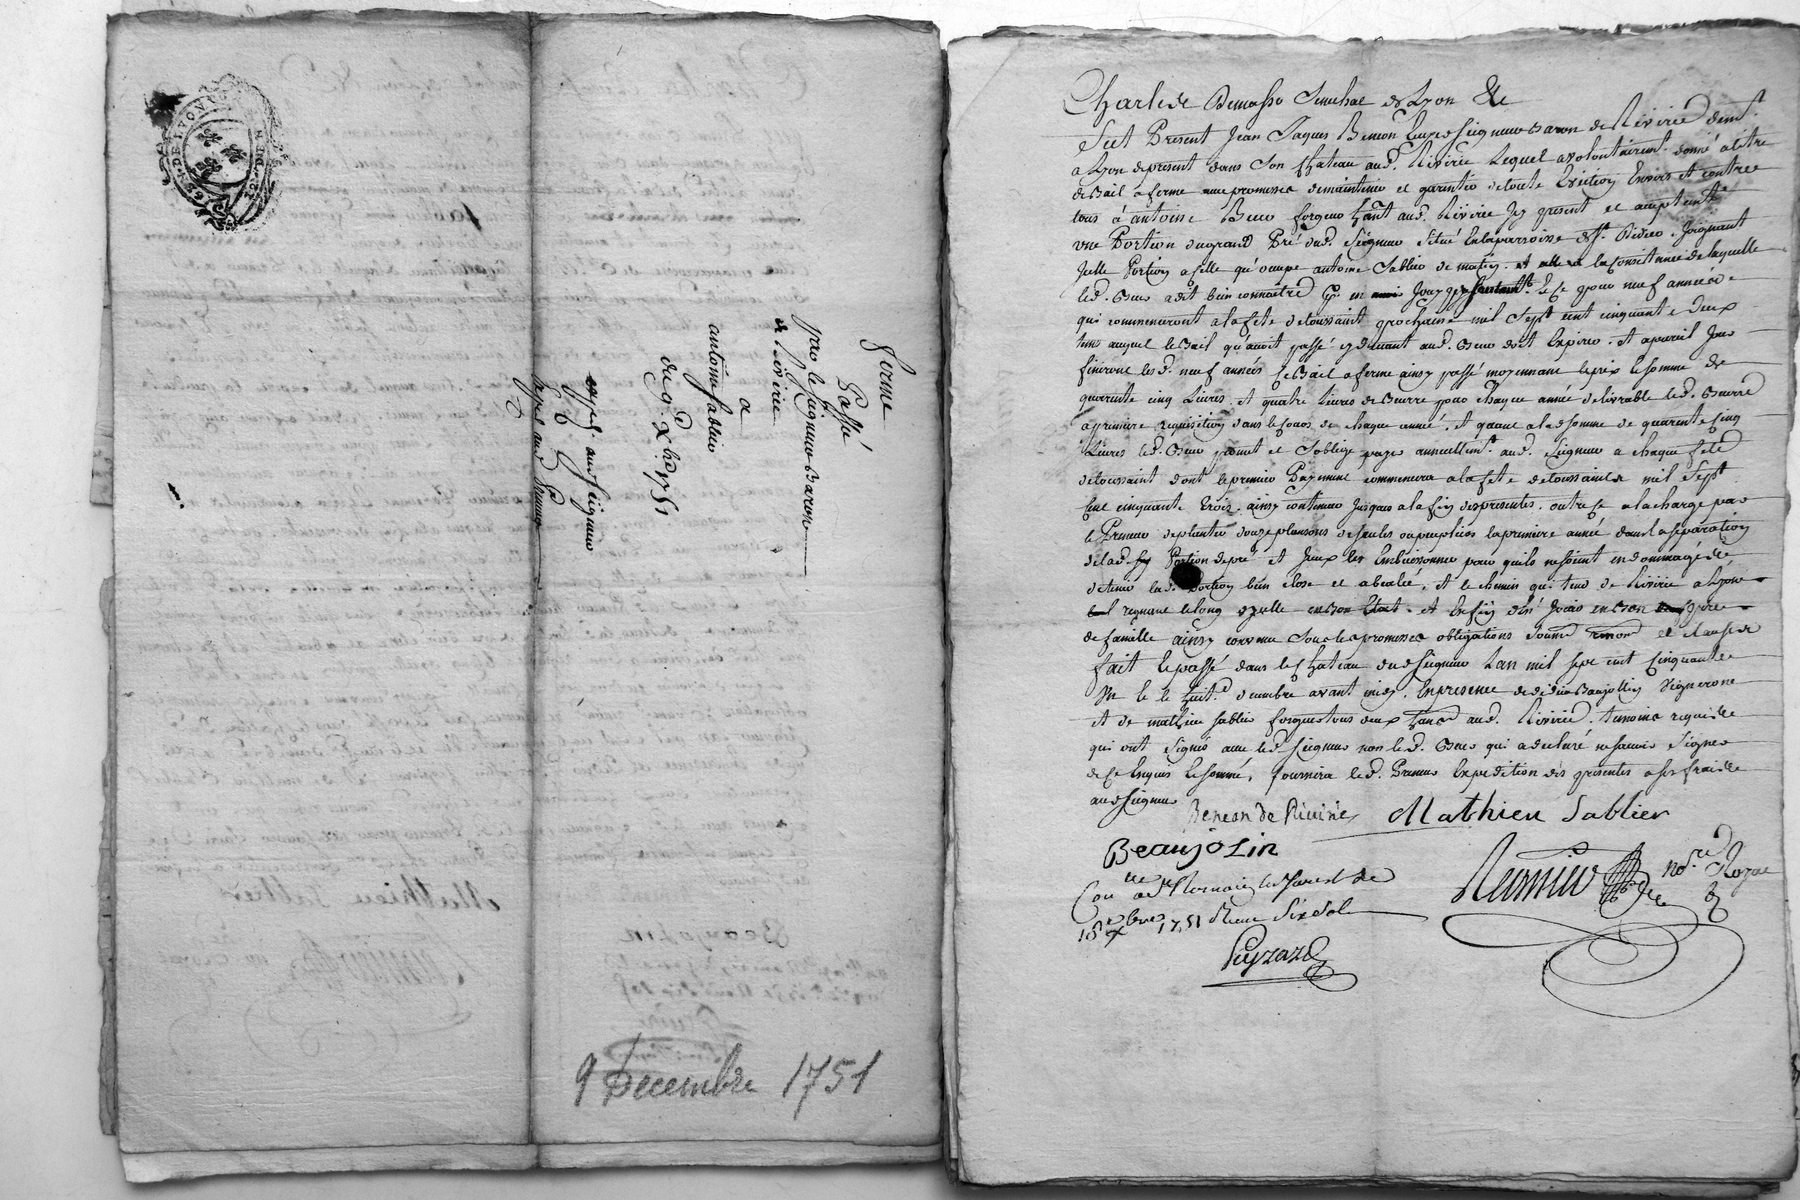 GN. DE LYON
Ferme
Passé
par le Seigneur Baron
de Riverie
a
antoine Sablier
du 9e Xbre 1751
exped. aud Seigneur
exped. aud Preneur
9 Decembre 1751
Charle de Demasso Senechal de Lyon &c
fut Present Jean Jaques Beneon Ecuyer Seigneur Baron de Riverie demt
a Lyon de present dans son chateau aud. Riverie Lequel a volontairemt donné a titre
de Bail a ferme avec promesse de maintenir et garentir de toute Eviction Envers et contre
tous à antoine forgeur habt aud. Riverie Icy present et acceptant
une Portion du grand Pré dud. Seigneur Situé En la parroisse de St Didier, Joignant
Jcelle Portion a celle qu'ocupe antoine Sablier la Consistance de laquelle
led. a dit bien connoitre Et ce pour neuf années
qui commenceront a la fete de toussaint prochaine mil Sept cent cinquante Deux
tems auquel le Bail qu'avoit passé cy devant aud. doit Expirer. Et a pareil Jour
finiront lesd. neuf années ce Bail a ferme ainsy passé moyennant le prix Et somme de
quarente cinq Livres, et quatre Livres de Beurre par chaque année delivrable led. Beurre
a premiere requisition dans le cours de chaque année, Et quant a lad somme de quarente cinq
Livres led. promet et s'oblige payer annuellemt aud. Seigneur a chaque fete
de toussaint dont le premier Payement commencera a la fete de toussaint de mil Sept
Cent cinquante trois, ainsy continuer Jusques a la fin des presentes, outre ce a la charge par
le Preneur de planter douze plansons de saules ou peupliers la premiere année dans la separation
de lad. Portion de pré et Jceux les Embuissonner pour qu'ils ne soient endommagés
de tenir lad. Portion bien close et, Et le chemin qui tend de Riverie a Lyon
regnant le long d'icelle en Bon Etat. Et Enfin d'en Jouir en Bon pere
de famille ainsy convenu Sous les promesses obligations Soumn renon et clauses
fait Et passé dans le chateau dud Seigneur L'an mil sept cent Cinquante
Un Et le huite decembre avant midy, En presence de Beaujollin Vigneron
et de mathieu Sablier forgeur tous deux habts aud. Riverie. temoins requis
qui ont Signés avec led. Seigneur non led. qui a declaré ne savoir Signer
de ce Enquis Et sommé, fournira led. Preneur Expedition des presentes a ses frais
aud Seigneur
Beneon de Riverie, Mathieu Sablier
Beaujolin
nore Royal
Con lle a le
18 Xbre 1751 Reçu Six Sols